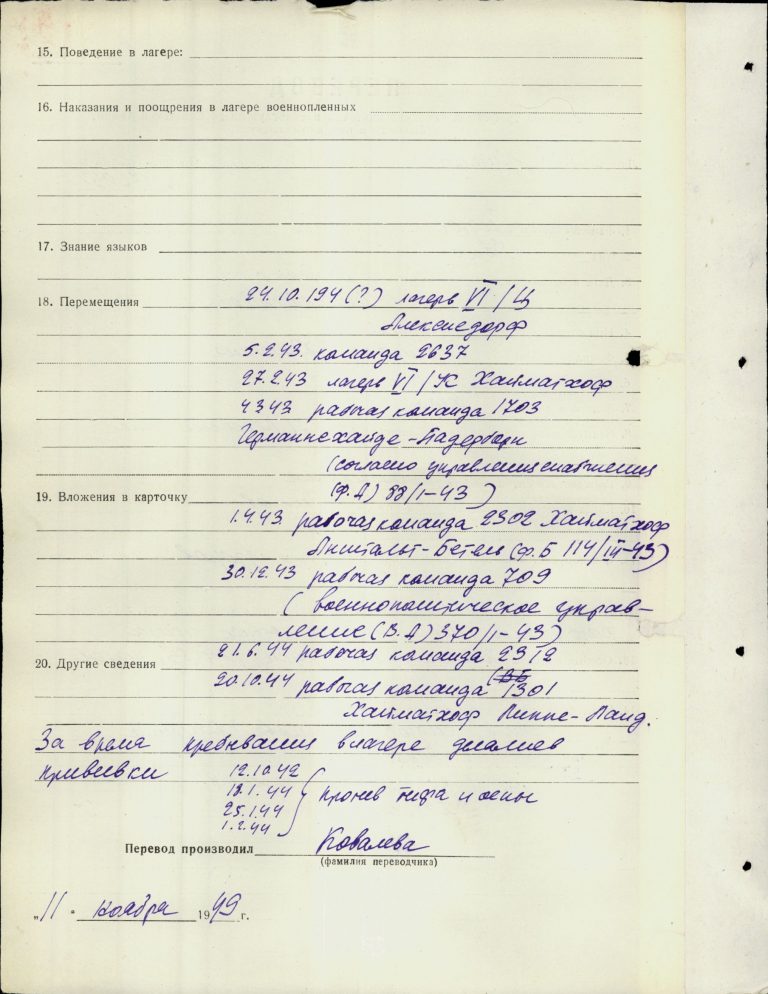 15. Поведение в лагере:
16. Наказания и поощрения в лагере военнопленных
17. Знание языков
18. Перемещения 24.10.194(?) лагерь VI/Ц
Алексисдорф
5.2.43. команда 2637
27.2.43 лагерь VI/К Хайматхоф
4.3.43 рабочая команда 1703
Германнсхайде-Падерборн
(согласно управления снабжения
19. Вложения в карточку (ф.А) 88/I-43)
1.4.43. рабочая команда 2302 Хайматхоф
Анштальт-Бетель (ф.Б 114/III-43)
30.12.43 рабочая команда 709
(военнополитическое управ-
ление (В.А) 370/I-43)
21.6.44 рабочая команда 2312
20. Другие сведения
20.10.44 рабочая команда 1301
Хайматхоф Липпе-Ланд.
За время пребывания в лагере делались
прививки 12.10.42
18.1.44 против тифа и оспы
25.1.44
1.2.44
Перевод производил Ковалева
(фамилия переводчика)
„11" ноября 1949 г.